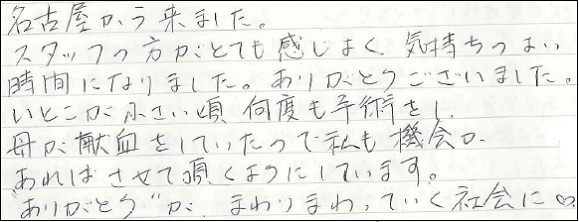 名古屋から来ました。
スタッフの方がとても感じよく、気持ちのよい
時間になりました。ありがとうございました。
いとこが小さい頃 何度も手術をし、
母が献血をしていたので私も機会が
あればさせて頂くようにしています。
"ありがとう"が、まわりまわっていく社会に♡